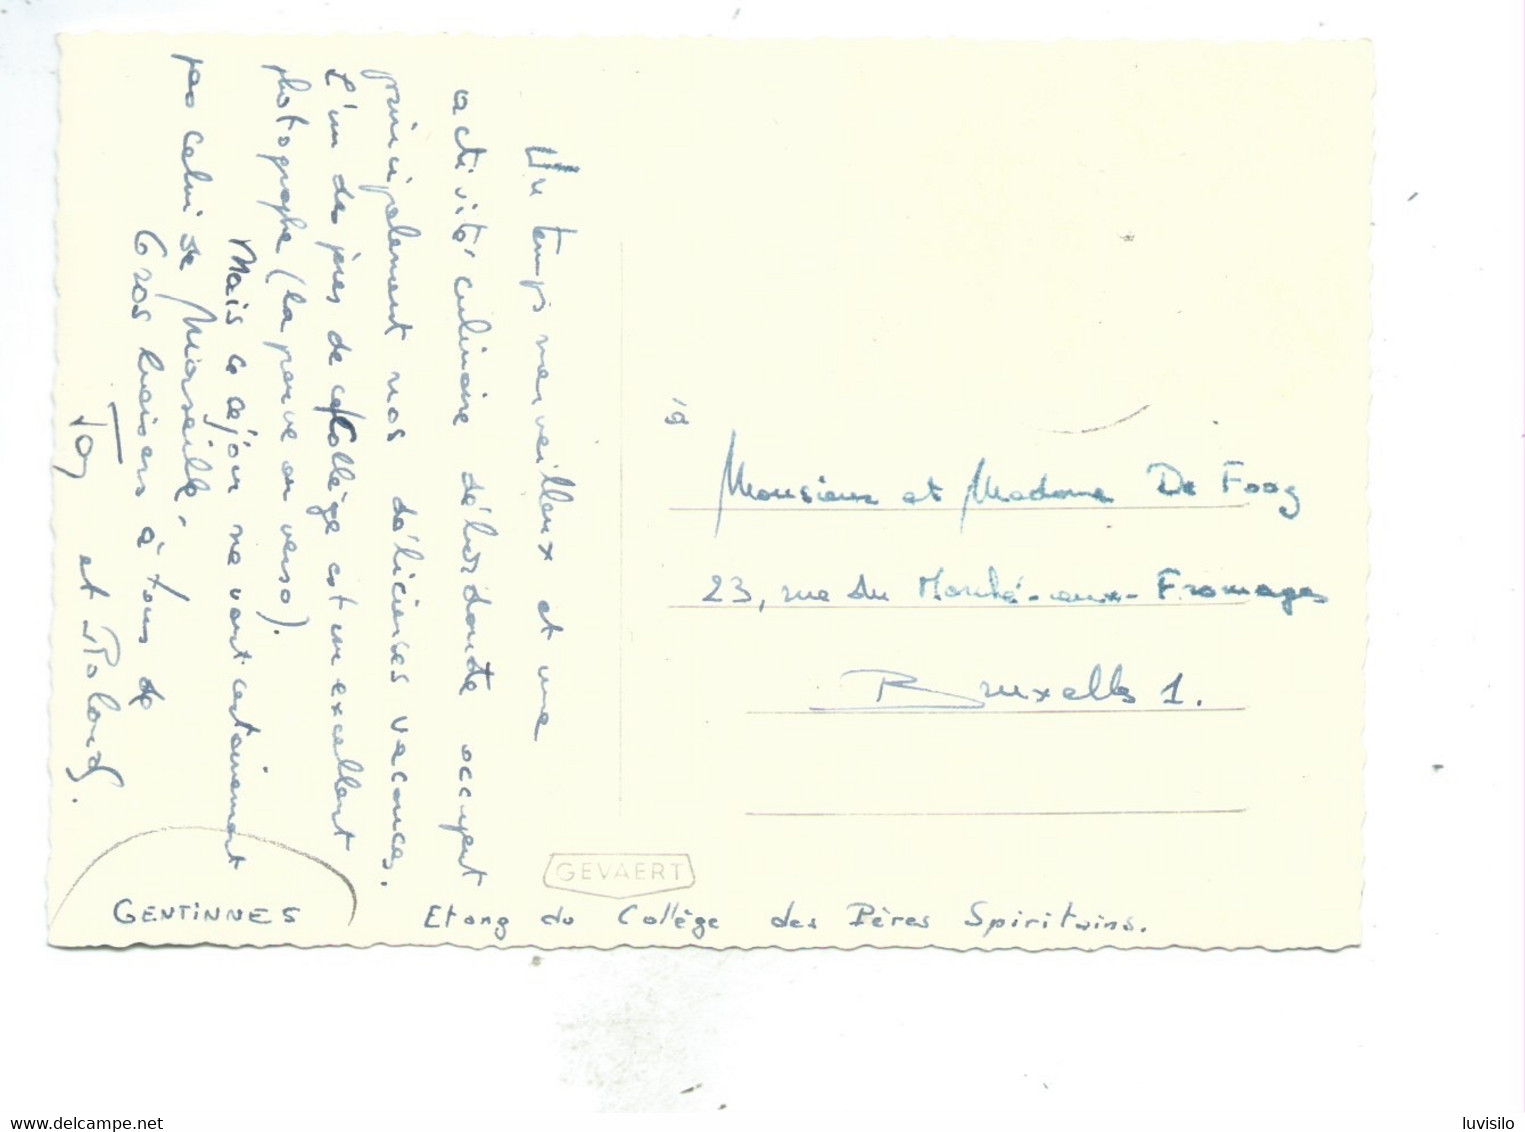 Un temps merveilleux et une
activité culinaire débordante occupent
principalement nos délicieuses vacances.
L'un des pères de ce Collège est un excellent
photographe (la preuve au verso).
Mais ce séjour ne vaut certainement
pas celui de Marseille.
Gros baisers à tous de
Tony et Roland.
à
Monsieur et Madame De Fooz
23, rue du Marché-aux-Fromages
Bruxelles 1.
GEVAERT
GENTINNES Etang du Collège des Pères Spiritains.
www.delcampe.net
luvisilo